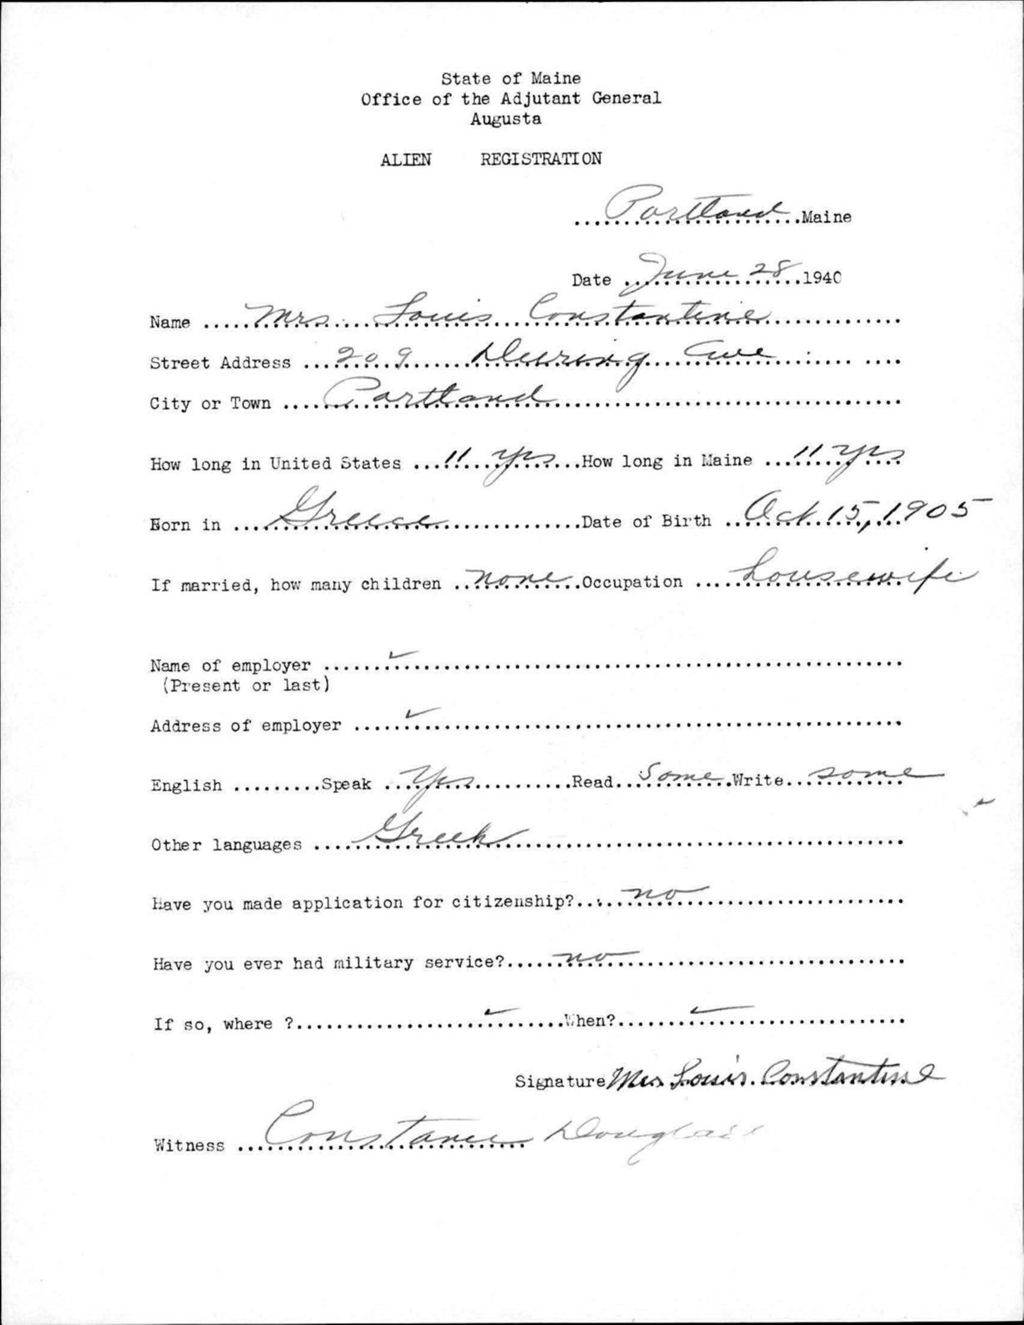 State of Maine
Office of the Adjutant General
Augusta
ALIEN REGISTRATION
Portland Maine
Date June 28 1940
Name Mrs. Louis Constantine
Street Address 209 Deering Ave
City or Town Portland
How long in United States 11 yrs How long in Maine 11 yrs
Born in Greece Date of Birth Oct. 15, 1905
If married, how many children none Occupation housewife
Name of employer ✓
(Present or last)
Address of employer ✓
English Speak Yes Read Some Write some
Other languages Greek
Have you made application for citizenship? no
Have you ever had military service? no
If so, where ? ✓ When? ✓
Signature Mrs Louis. Constantine
Witness Constance Douglass